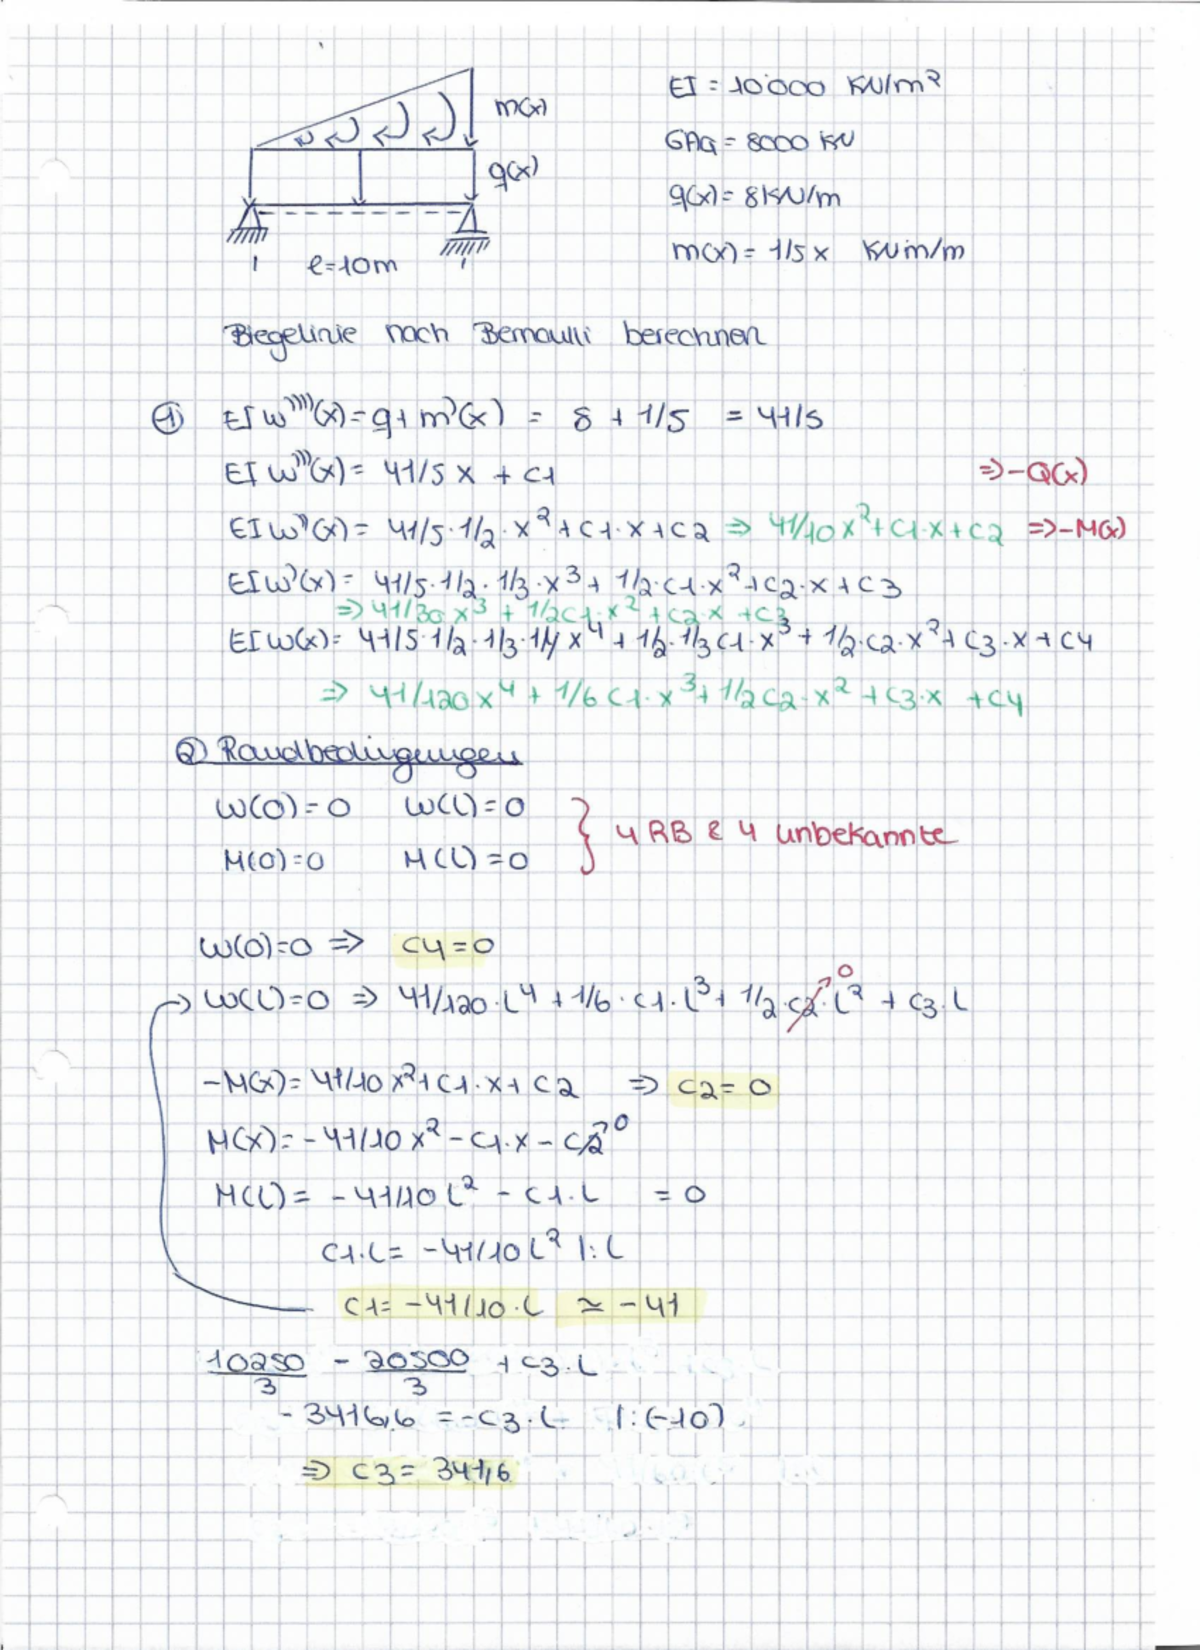 m(x)
q(x)
l=10m
EI = 10'000 KN/m²
GAQ = 8000 KN
q(x) = 8KN/m
m(x) = 1/5 x KNm/m
Biegelinie nach Bernoulli berechnen
① EI w''''(x) = q + m'(x) = 8 + 1/5 = 41/5
EI w'''(x) = 41/5 x + C1 => -Q(x)
EI w''(x) = 41/5 · 1/2 · x² + C1 · x + C2 => 41/10 x² + C1·x + C2 => -M(x)
EI w'(x) = 41/5 · 1/2 · 1/3 · x³ + 1/2 · C1 · x² + C2 · x + C3
=> 41/30 x³ + 1/2 C1 · x² + C2 · x + C3
EI w(x) = 41/5 · 1/2 · 1/3 · 1/4 x⁴ + 1/2 · 1/3 C1 · x³ + 1/2 · C2 · x² + C3 · x + C4
=> 41/120 x⁴ + 1/6 C1 · x³ + 1/2 C2 · x² + C3 · x + C4
② Randbedingungen
W(0) = 0 W(L) = 0
M(0) = 0 M(L) = 0
} 4 RB & 4 unbekannte
W(0) = 0 => C4 = 0
W(L) = 0 => 41/120 · L⁴ + 1/6 · C1 · L³ + 1/2 · C2 · L² + C3 · L
0
-M(x) = 41/10 x² + C1 · x + C2 => C2 = 0
M(x) = - 41/10 x² - C1 · x - C2 0
M(L) = - 41/10 L² - C1 · L = 0
C1 · L = - 41/10 L² |: L
C1 = - 41/10 · L ≃ - 41
10250/3 - 20500/3 + C3 · L
- 3416,6 = - C3 · L |: (-10)
=> C3 = 341,6